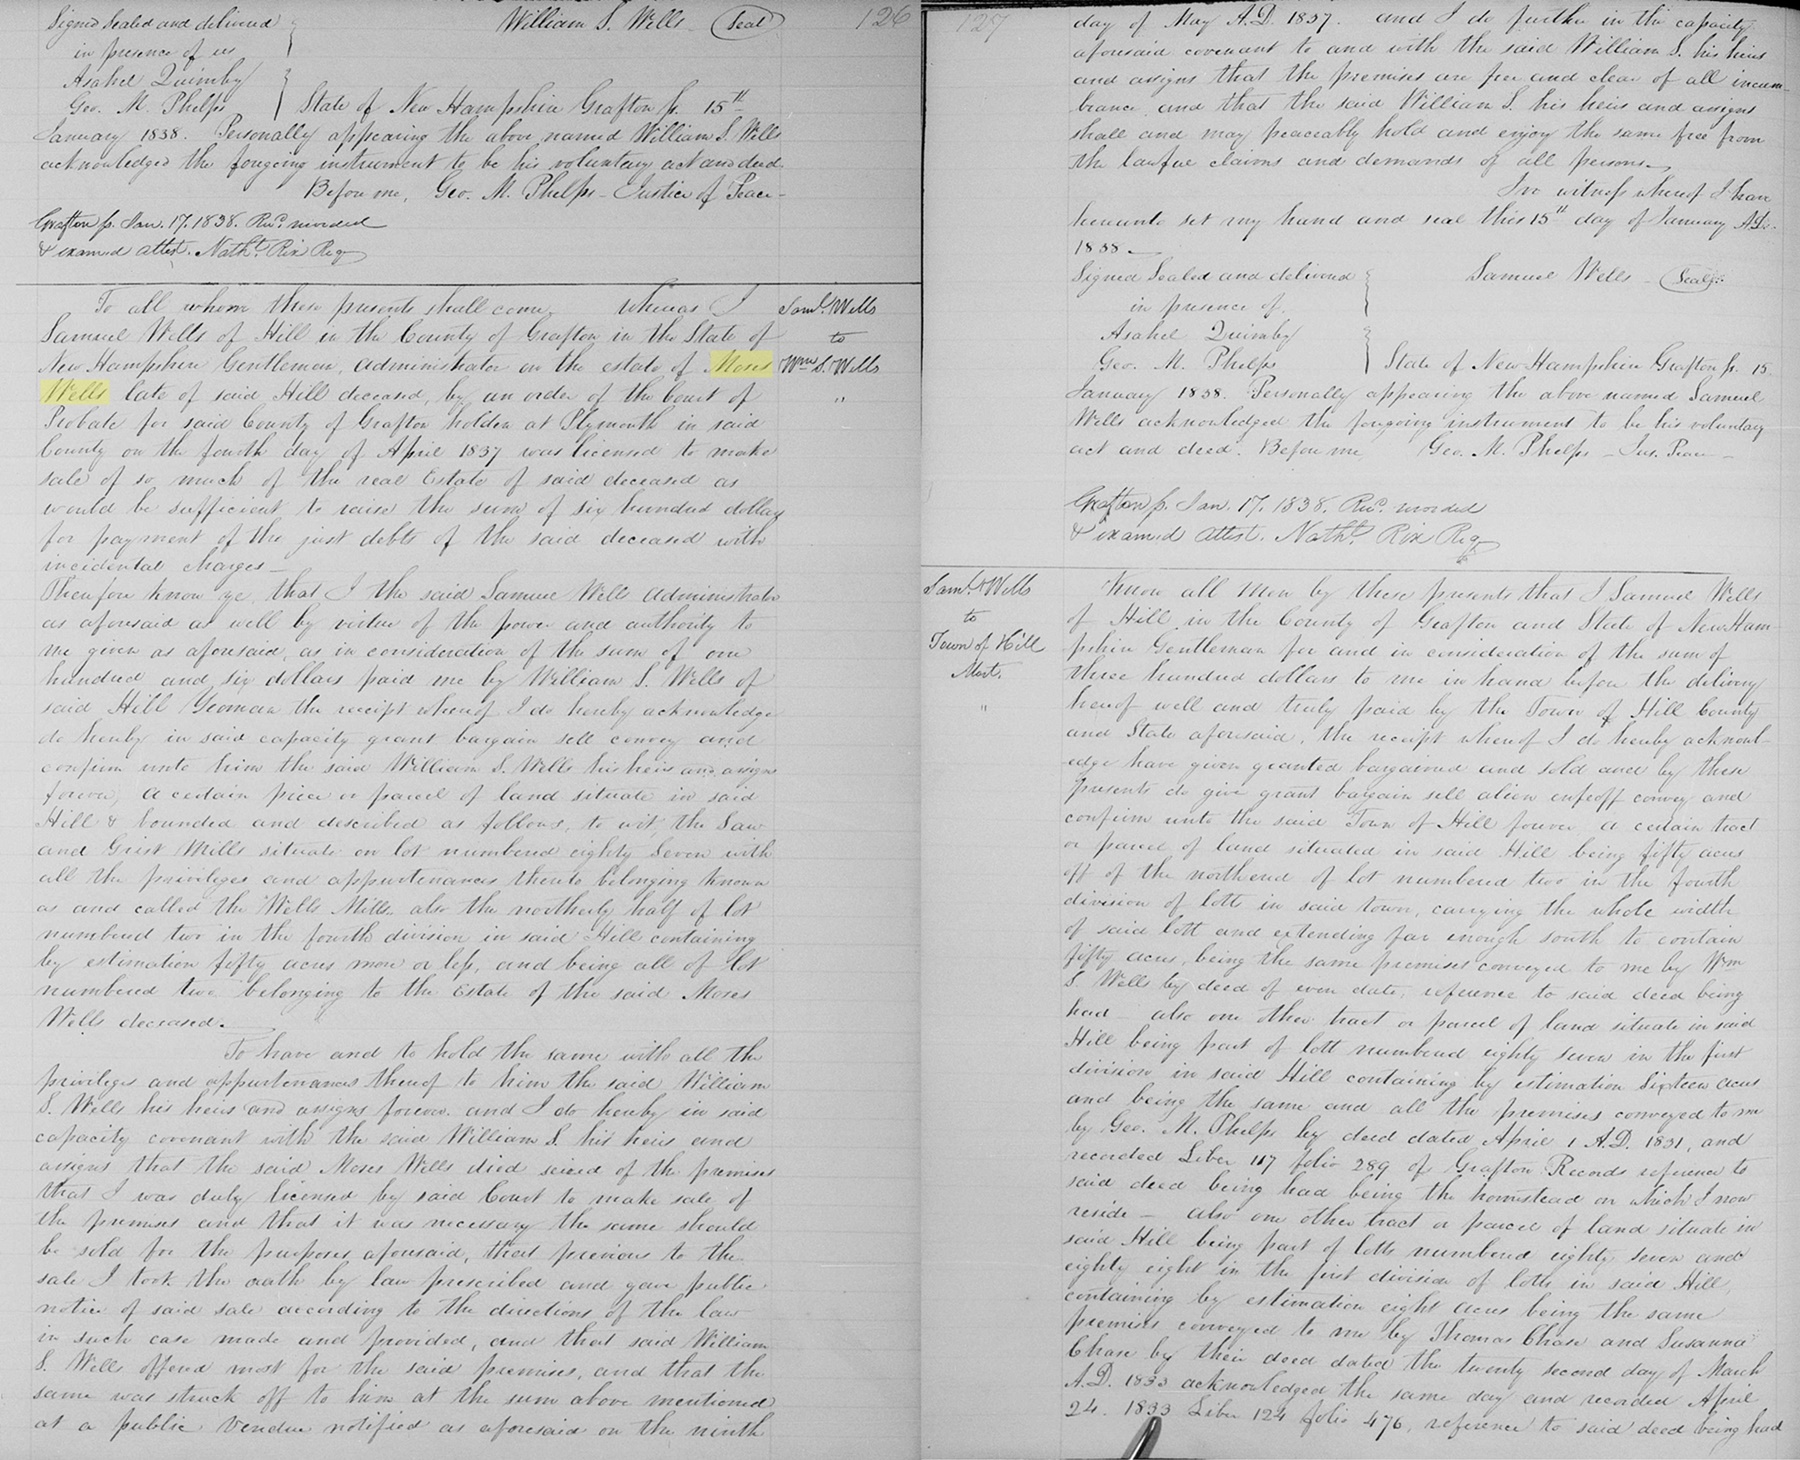 Signed Sealed and delivered William S. Wells (Seal) 126
in presence of us
Asahel Quimby
Geo. M. Phelps State of New Hampshire Grafton ss. 15th
January 1838. Personally appearing the above named William S. Wells
acknowledged the forgoing instrument to be his voluntary act and deed.
Before me, Geo. M. Phelps - Justice of Peace -
Grafton ss. Jan. 17. 1838. Recd. recorded
& examd attest. Nathl. Rix Reg
To all whom these presents shall come, whereas I
Saml. Wells
to
Wm S. Wells
"
Samuel Wells of Hill in the County of Grafton in the State of
New Hampshire Gentleman, administrator on the estate of Moses
Wells late of said Hill deceased, by an order of the Court of
Probate for said County of Grafton holden at Plymouth in said
County on the fourth day of April 1837 was licensed to make
sale of so much of the real Estate of said deceased as
would be sufficient to raise the sum of six hundred dollars
for payment of the just debts of the said deceased with
incidental charges -
Therefore know ye, that I the said Samuel Wells administrator
as aforesaid as well by virtue of the power and authority to
me given as aforesaid, as in consideration of the sum of one
hundred and six dollars paid me by William S. Wells of
said Hill Yeoman the receipt whereof I do hereby acknowledge
do hereby in said capacity grant bargain sell convey and
confirm unto him the said William S. Wells his heirs and assigns
forever, a certain piece or parcel of land situate in said
Hill & bounded and described as follows, to wit, the Saw
and Grist Mills situate on lot numbered eighty seven with
all the privileges and appurtenances thereto belonging known
as and called the Wells Mills. also the northerly half of lot
numbered two in the fourth division in said Hill containing
by estimation fifty acres more or less, and being all of lot
numbered two belonging to the Estate of the said Moses
Wells deceased. -
To have and to hold the same with all the
privileges and appurtenances thereof to him the said William
S. Wells his heirs and assigns forever. and I do hereby in said
capacity covenant with the said William S. his heirs and
assigns that the said Moses Wells died seized of the premises
that I was duly licensed by said Court to make sale of
the premises and that it was necessary the same should
be sold for the purposes aforesaid, that previous to the
sale I took the oath by law prescribed and gave public
notice of said sale according to the directions of the law
in such case made and provided, and that said William
S. Wells offered most for the said premises, and that the
same was struck off to him at the sum above mentioned
at a public vendue notified as aforesaid on the ninth
127
day of May A.D. 1837. and I do further in the capacity
aforesaid covenant to and with the said William S. his heirs
and assigns that the premises are free and clear of all incum-
brance and that the said William S. his heirs and assigns
shall and may peaceably hold and enjoy the same free from
the lawful claims and demands of all persons -
In witness whereof I have
hereunto set my hand and seal this 15th day of January A.D.
1838 -
Signed Sealed and delivered Samuel Wells - (Seal)
in presence of.
Asahel Quimby
Geo. M. Phelps State of New Hampshire Grafton ss. 15
January 1838. Personally appearing the above named Samuel
Wells acknowledged the forgoing instrument to be his voluntary
act and deed. Before me Geo. M. Phelps - Jus. Peace -
Grafton ss. Jan. 17. 1838. Recd. recorded
& examd attest. Nathl. Rix Reg
Saml. Wells
to
Town of Hill
Mort.
"
Know all Men by these presents that I Samuel Wells
of Hill in the County of Grafton and State of New Ham-
pshire Gentleman for and in consideration of the sum of
three hundred dollars to me in hand before the delivery
hereof well and truly paid by the Town of Hill County
and State aforesaid, the receipt whereof I do hereby acknowl-
edge have given granted bargained and sold and by these
presents do give grant bargain sell alien enfeoff convey and
confirm unto the said Town of Hill forever a certain tract
or parcel of land situated in said Hill being fifty acres
off of the north end of lot numbered two in the fourth
division of lotts in said town, carrying the whole width
of said lott and extending far enough south to contain
fifty acres, being the same premises conveyed to me by Wm
S. Wells by deed of even date, reference to said deed being
had - also one other tract or parcel of land situate in said
Hill being part of lott numbered eighty seven in the first
division in said Hill containing by estimation Sixteen acres
and being the same and all the premises conveyed to me
by Geo. M. Phelps by deed dated April 1 A.D. 1831, and
recorded Liber 117 folio 289 of Grafton Records reference to
said deed being had being the homestead on which I now
reside - also one other tract or parcel of land situate in
said Hill being part of lotts numbered eighty seven and
eighty eight in the first division of lotts in said Hill,
containing by estimation eight acres being the same
premises conveyed to me by Thomas Chase and Susanna
Chase by their deed dated the twenty second day of March
A.D. 1833 acknowledged the same day and recorded April
24. 1833 Liber 124 folio 476, reference to said deed being had